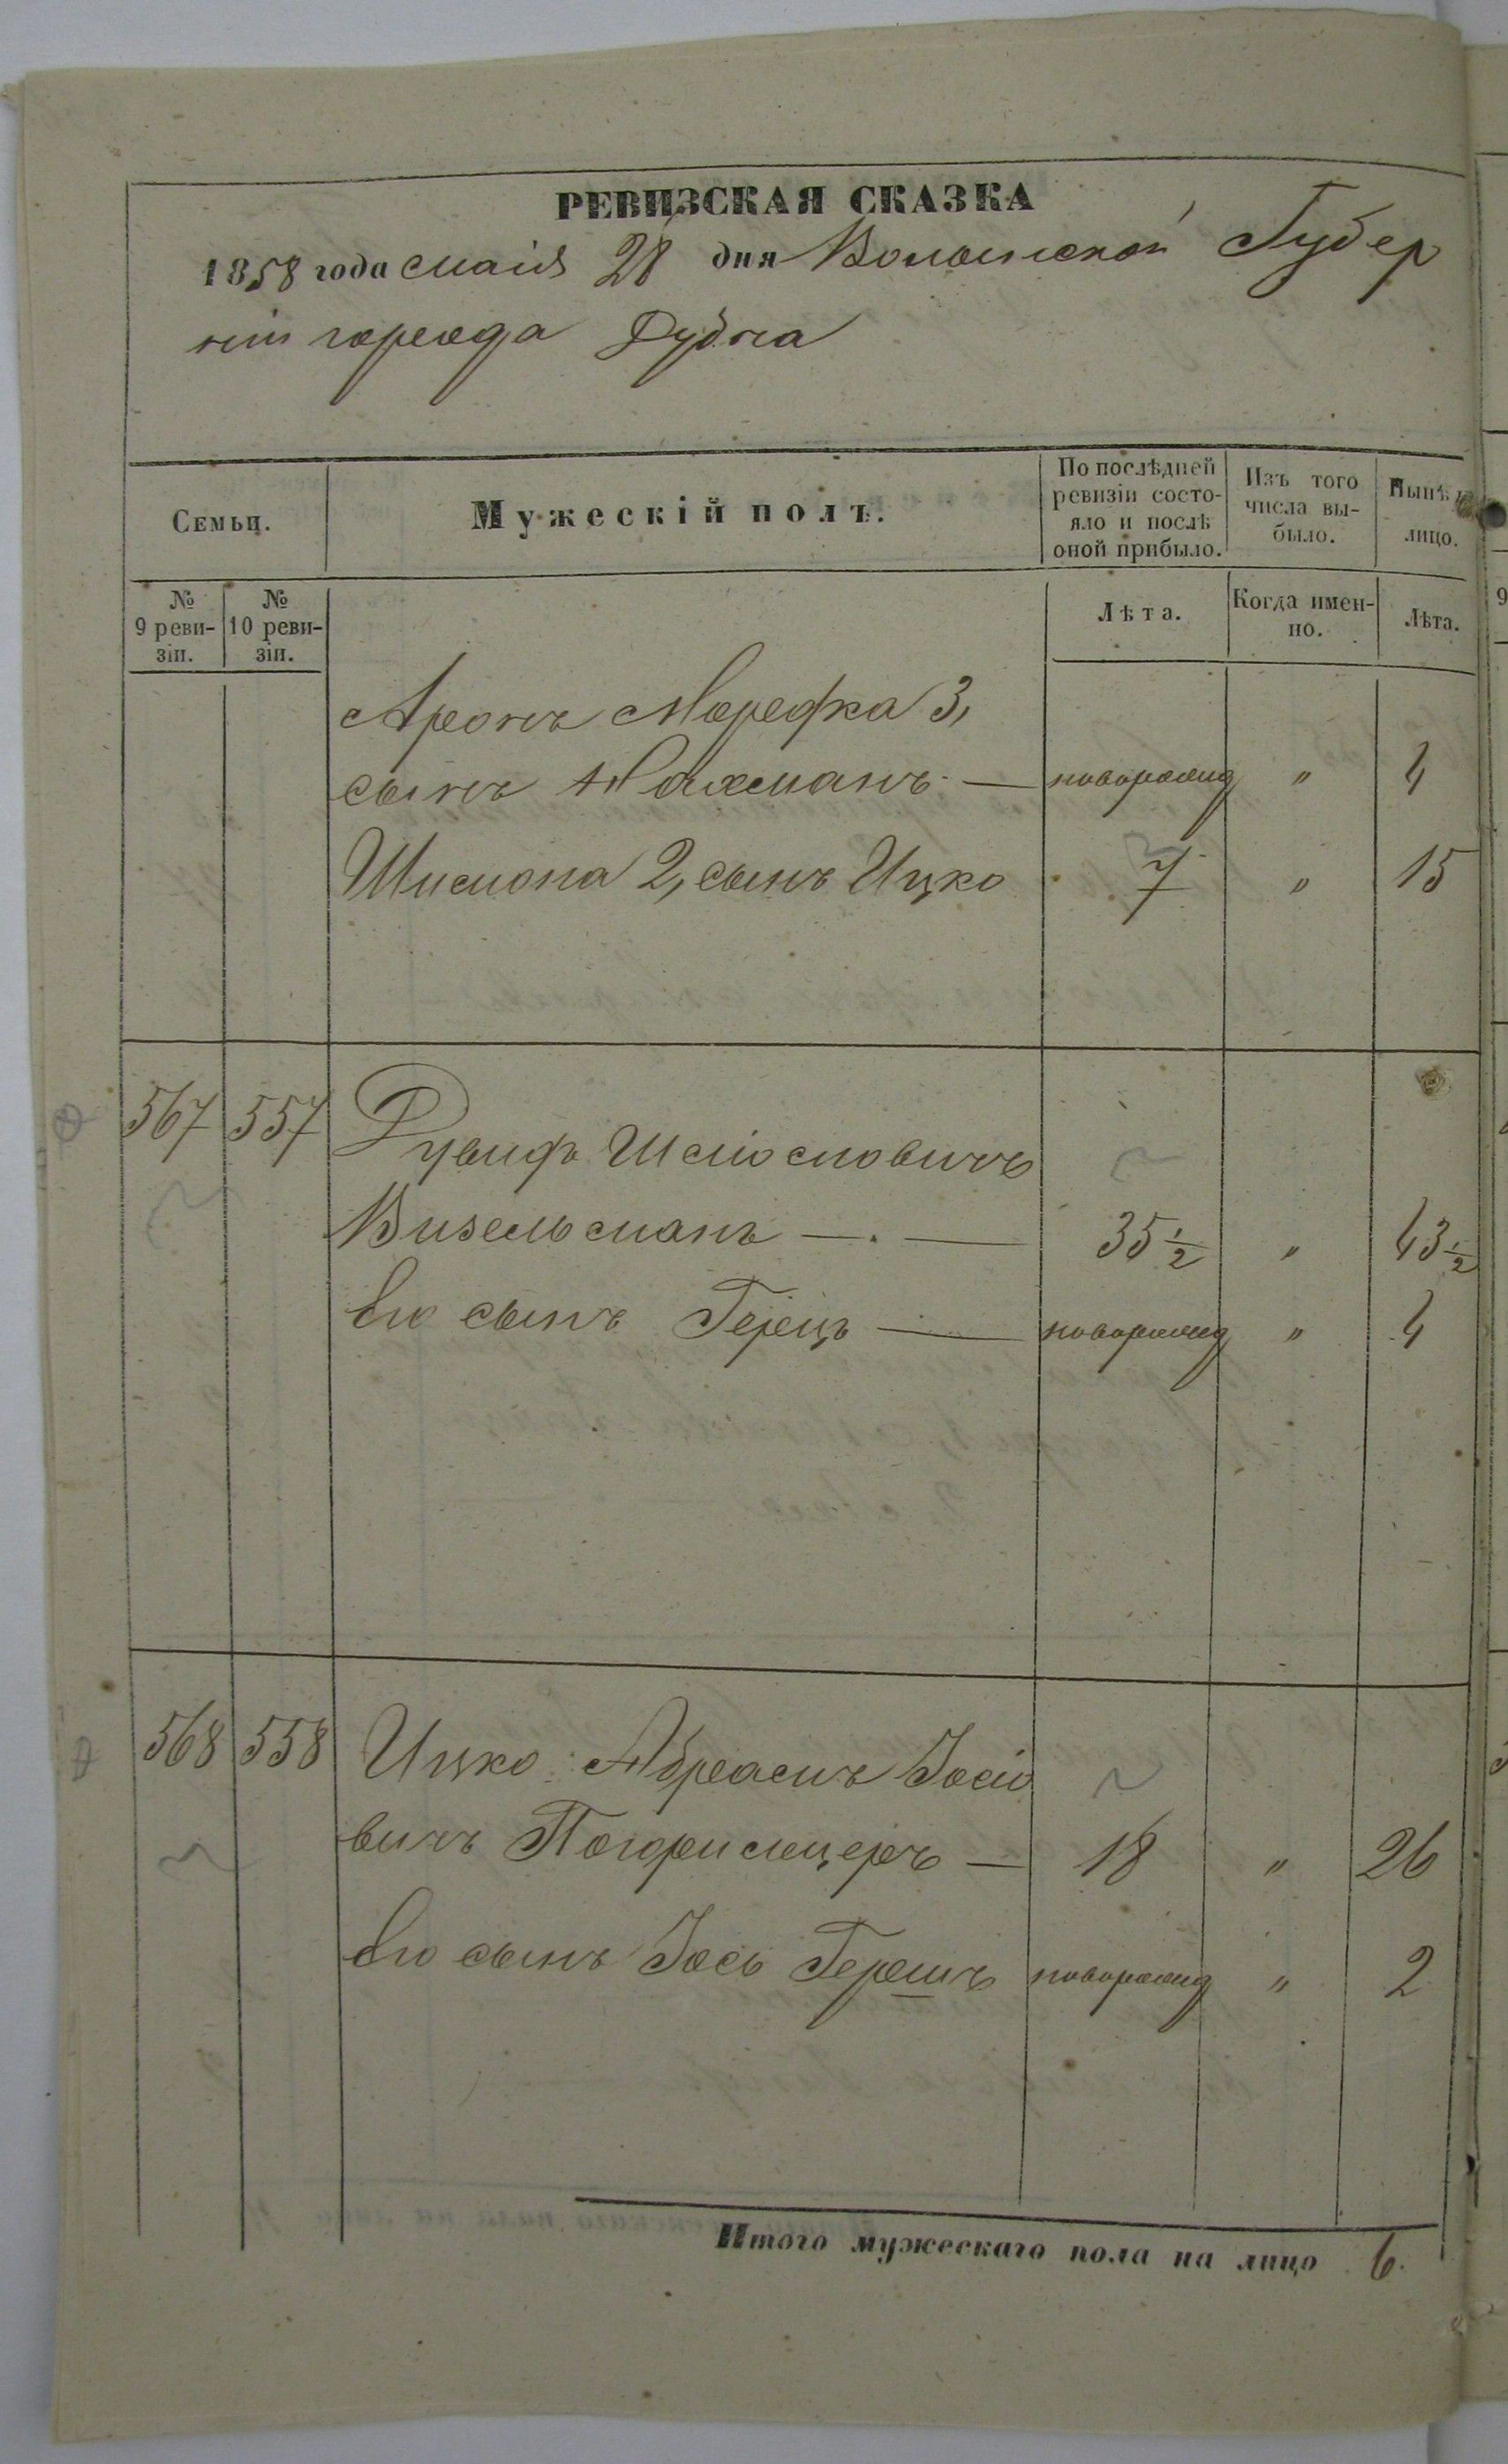 РЕВИЗСКАЯ СКАЗКА
1858 года маія 28 дня Волынской Губер
ніи города Дубна
Семьи.
Мужескій полъ.
По послѣдней ревизіи состояло и послѣ оной прибыло.
Изъ того числа выбыло.
Нынѣ лицо.
№ 9 ревизіи.
№ 10 ревизіи.
Лѣта.
Когда именно.
Лѣта.
Аронъ Мордка 3,
сынъ Нахманъ — новорожд " 4
Шимона 2, сынъ Ицко 7 " 15
567 557 Рувинъ Шлiомовичъ
Визельманъ — . — 35 1/2 " 43 1/2
Его сынъ Герцъ — новорожд " 4
568 558 Ицко Абрамъ Іосіо
вичъ — 18 " 26
Его сынъ Іось Гершъ новорожд " 2
Итого мужескаго пола на лицо 6.